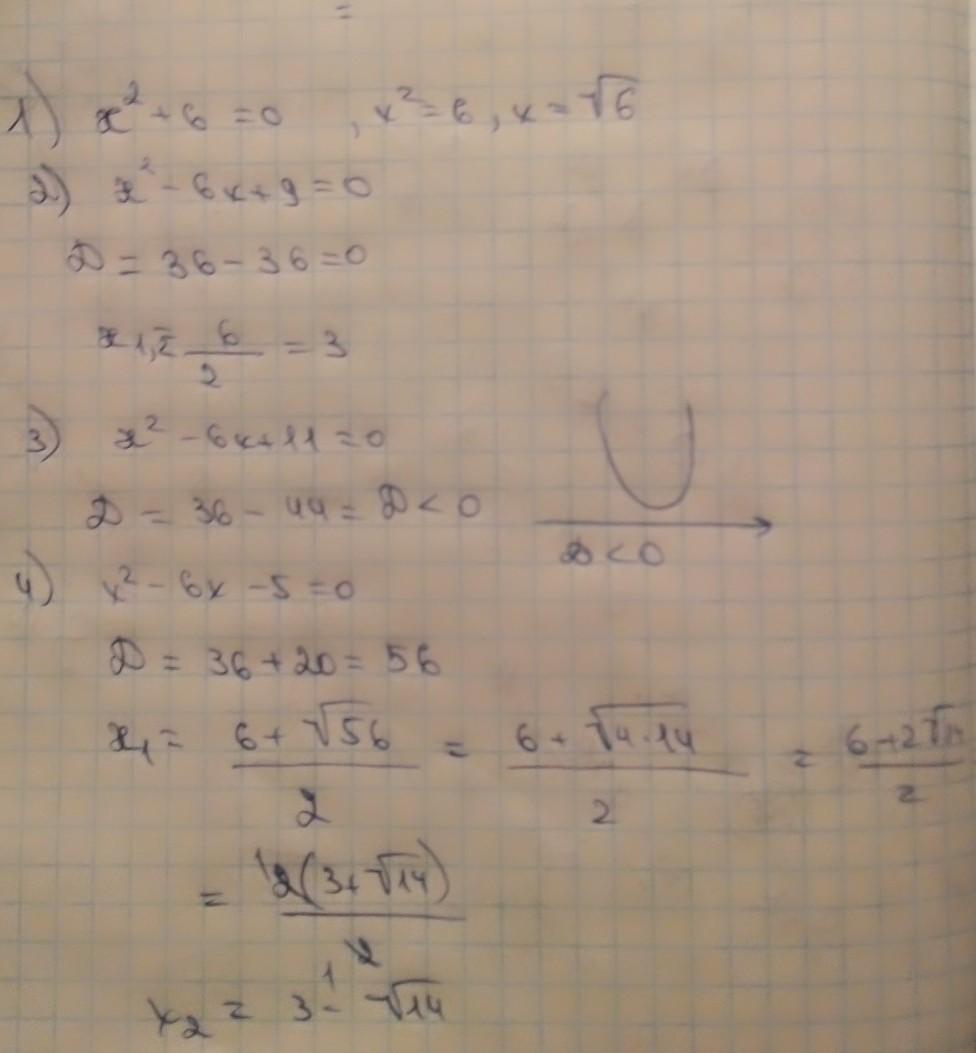 =
1) x² + 6 = 0 , x² = 6 , x = √6
2) x² - 6x + 9 = 0
D = 36 - 36 = 0
x₁,₂ = 6/2 = 3
3) x² - 6x + 11 = 0
D = 36 - 44 = D < 0
D < 0
4) x² - 6x - 5 = 0
D = 36 + 20 = 56
x₁ = (6 + √56)/2 = (6 + √4·14)/2 = (6 + 2√14)/2
= ¹2(3 + √14)/2 1
x₂ = 3 - √14